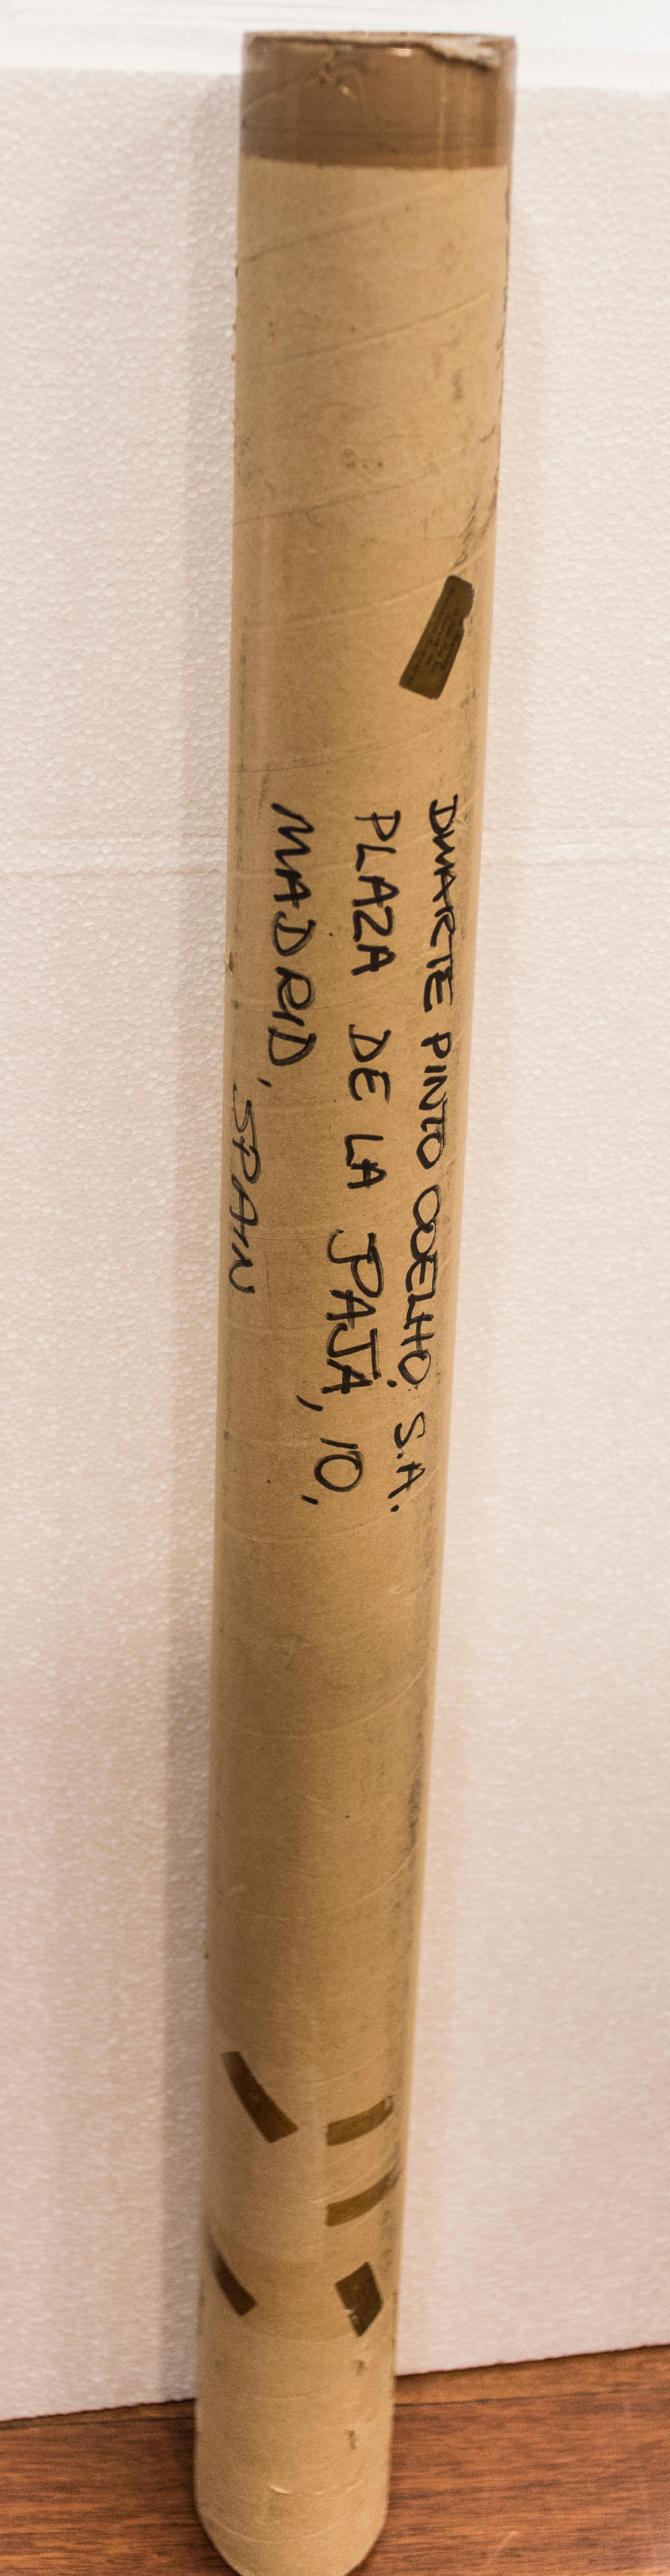 DUARTE PINTO COELHO S.A.
PLAZA DE LA PAJA, 10,
MADRID, SPAIN